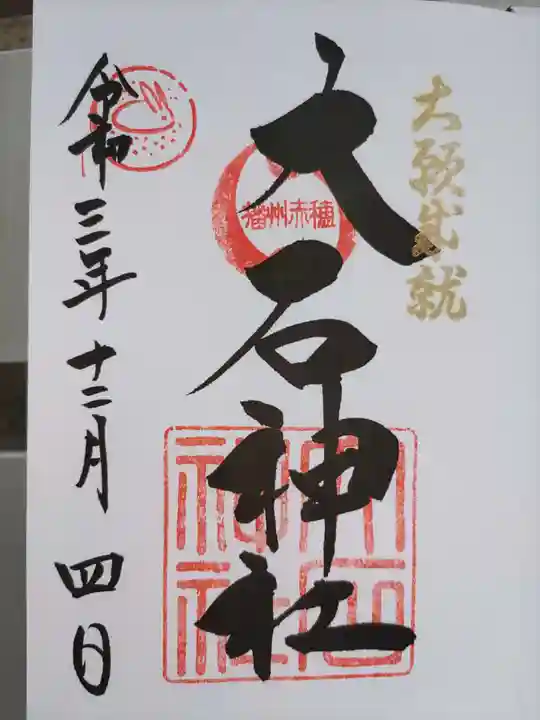 大願成就
大石神社
播州赤穂
大石
神社
令和三年十二月四日